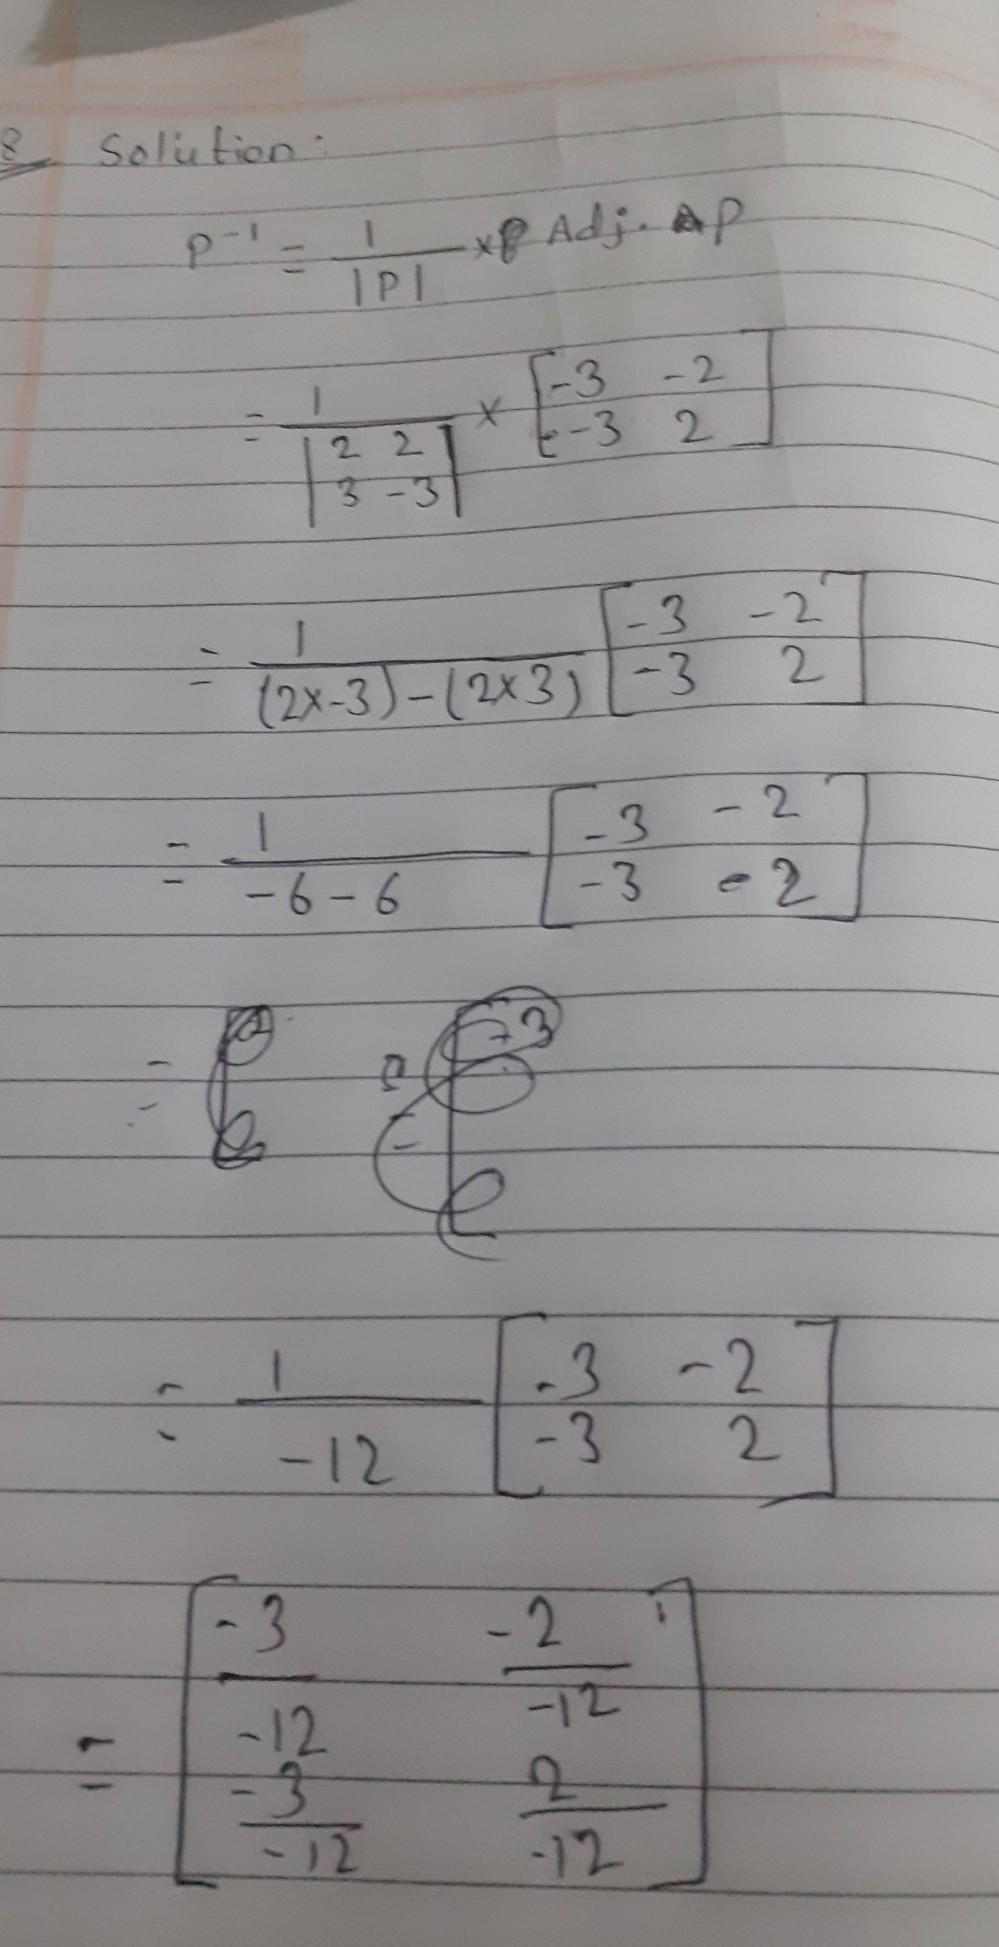 8 Solution:
P⁻¹ = 1/|P| × Adj. P
= 1/|2 2; 3 -3| × [-3 -2; -3 2]
= 1/((2×-3)-(2×3)) [-3 -2; -3 2]
= 1/(-6-6) [-3 -2; -3 -2]
=
= 1/-12 [-3 -2; -3 2]
= [-3/-12 -2/-12; -3/-12 2/-12]